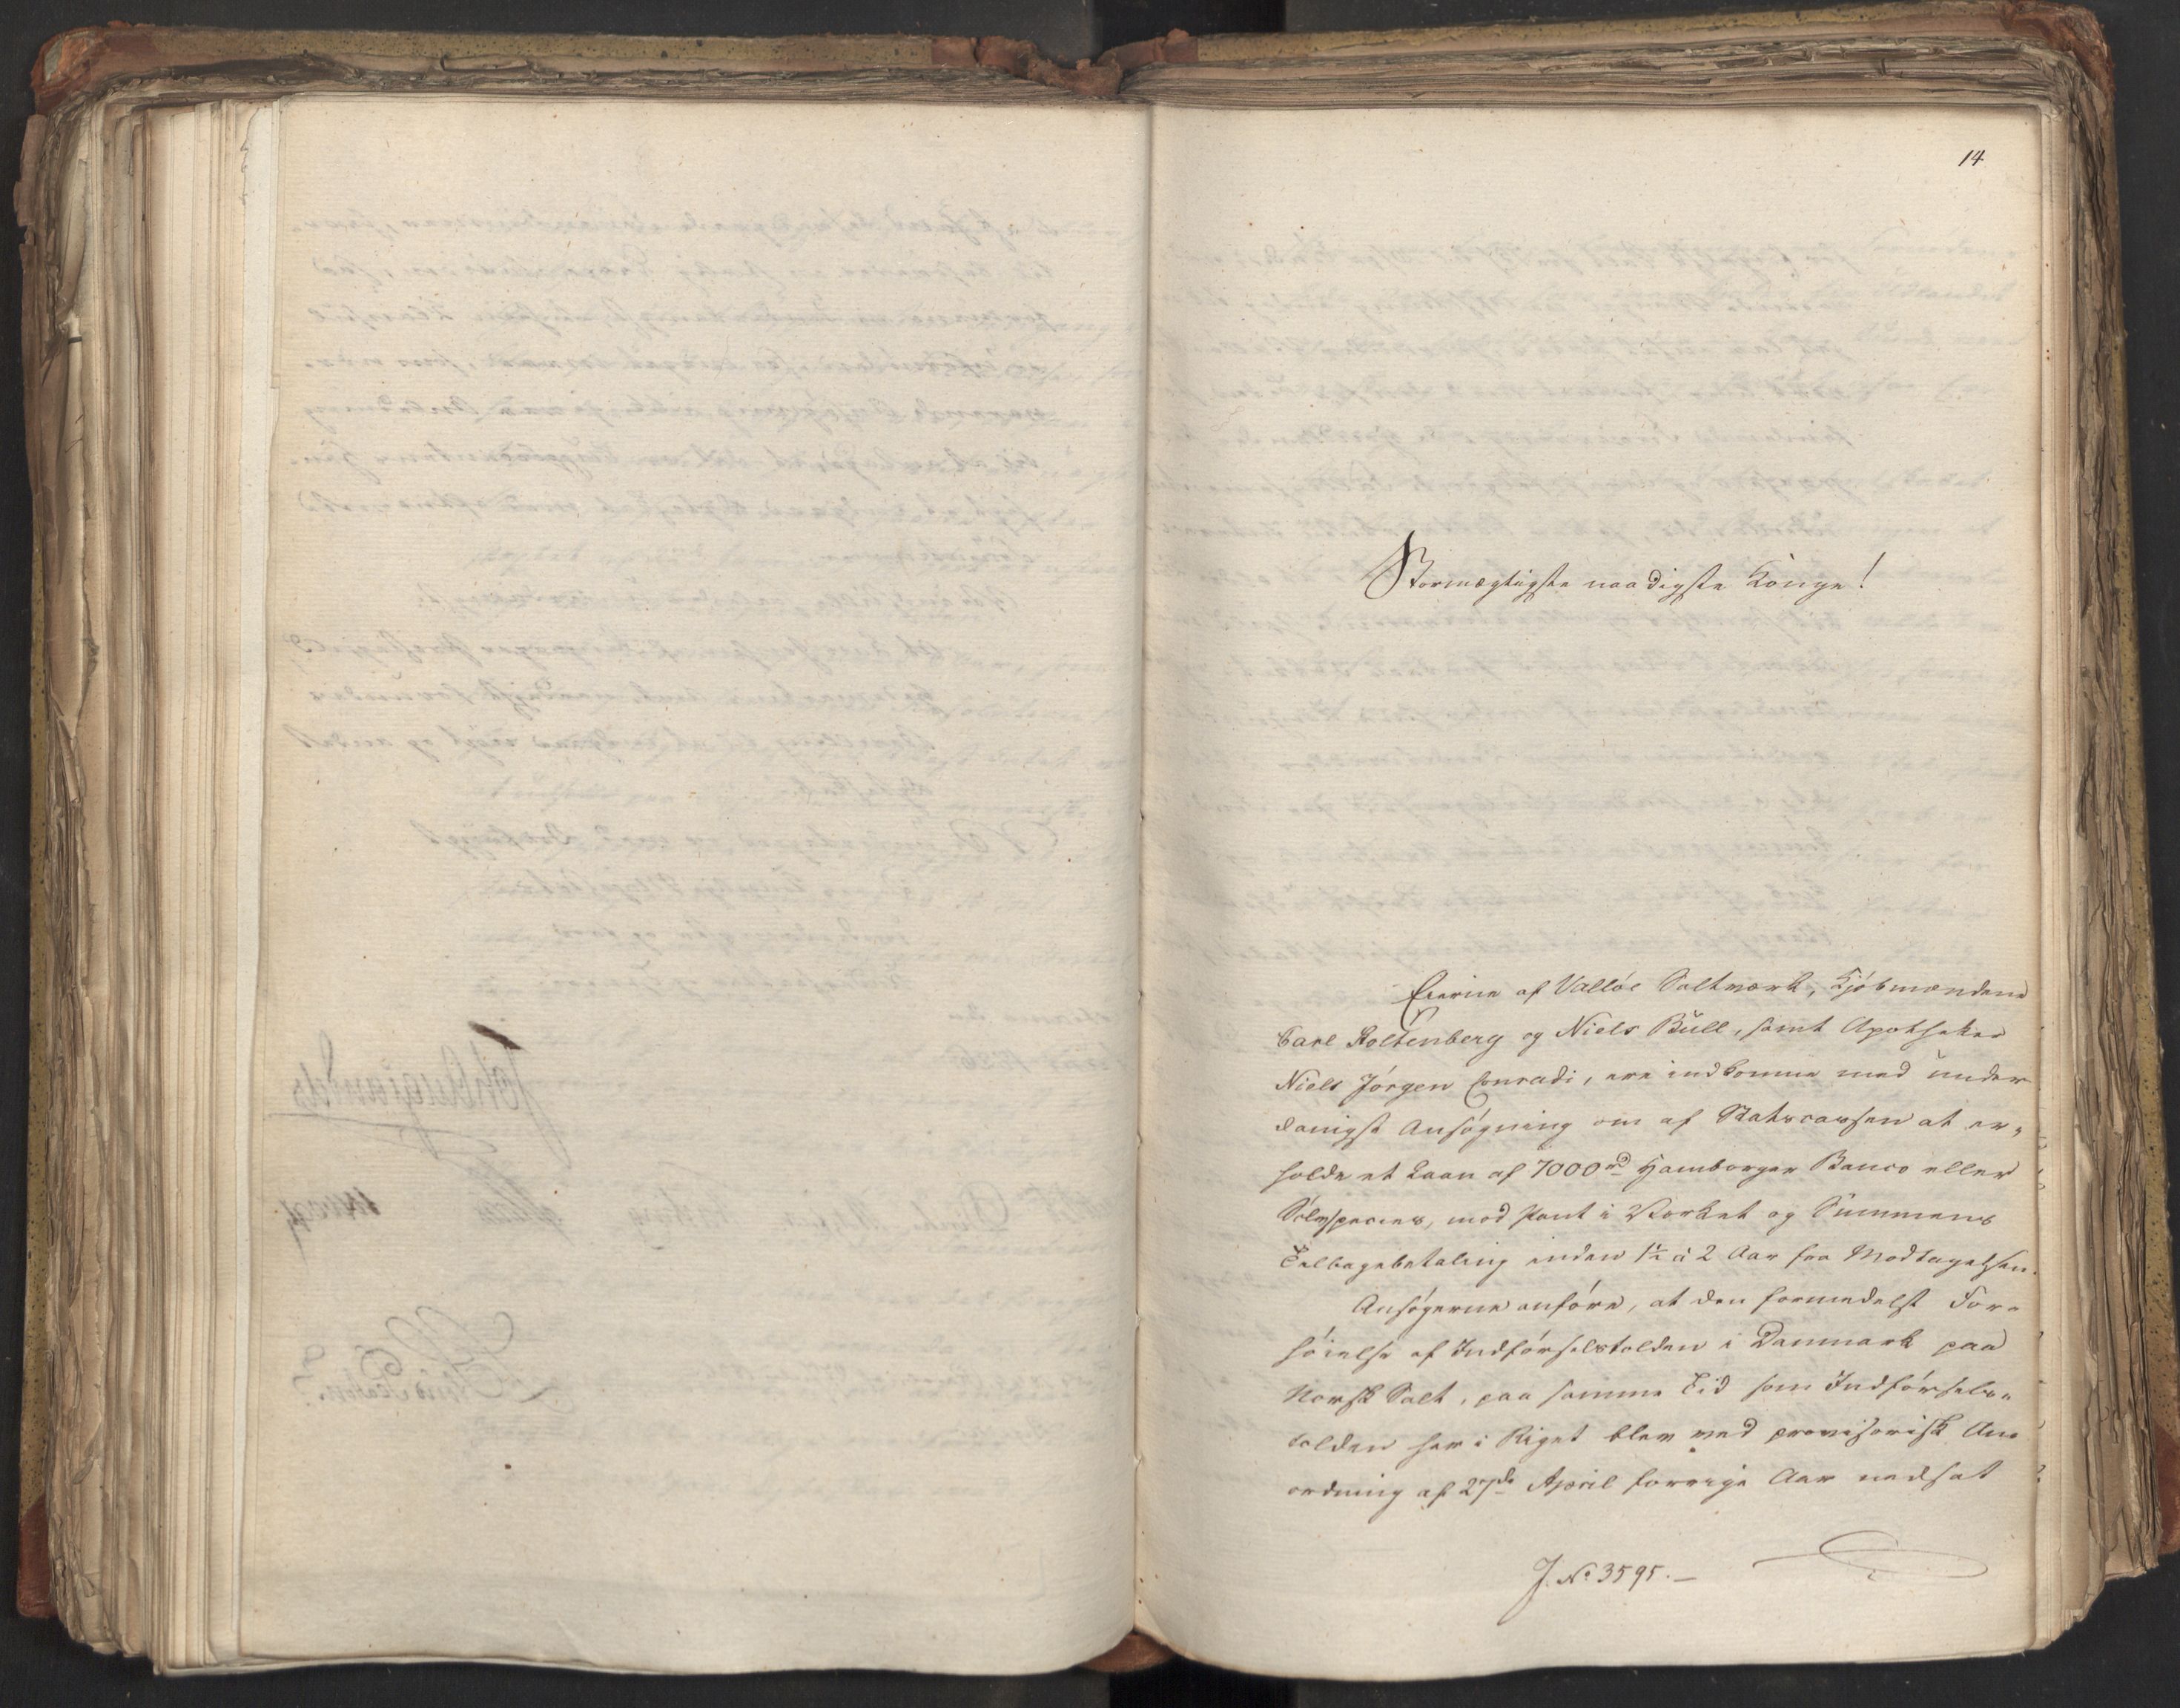 14
Stormægtigste naadigste Konge!
Eierne af Vallöe Saltværk, Kjöbmændene
Carl Stoltenberg og Niels Bull, samt Apotheker
Niels Jörgen Conradi, ere indkomne med under-
danigst Ansögning om af Statscassen at er-
holde et Laan af 7000 Hamborger Banco eller
Sölvspecies, mod Pant i Værket og Summens
Tilbagebetaling inden 1½ à 2 Aar fra Modtagelsen.
Ansögerne anföre, at den formedelst For-
höielse af Indförselstolden i Danmark paa
Norsk Salt, paa samme Tid som Indförsels-
tolden her i Riget blev ved provisorisk An-
ordning af 27de April forrige Aar nedsat
J. No 3595.-